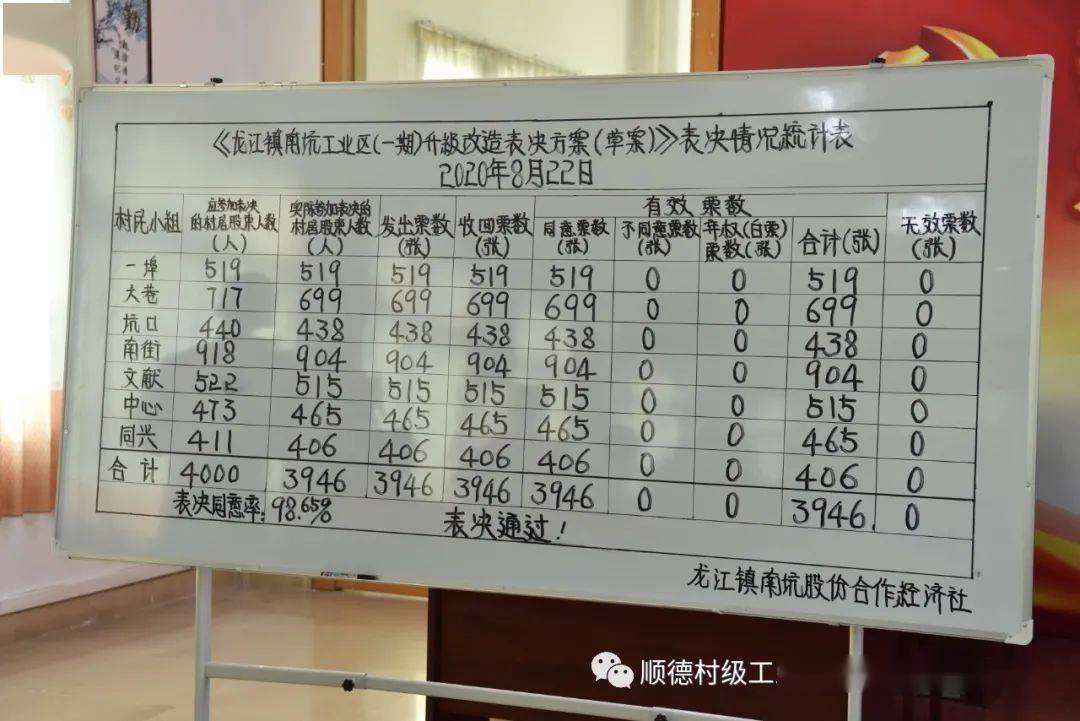 勤
《龙江镇南坑工业区(一期)升级改造表决方案(草案)》表决情况统计表
2020年8月22日
村民小组 应参加表决的村居股东人数(人) 实际参加表决的村居股东人数(人) 发出票数(张) 收回票数(张) 有效票数 无效票数(张)
同意票数(张) 不同意票数(张) 弃权(白票)票数(张) 合计(张)
一埠 519 519 519 519 519 0 0 519 0
大巷 717 699 699 699 699 0 0 699 0
坑口 440 438 438 438 438 0 0 438 0
南街 918 904 904 904 904 0 0 904 0
文献 522 515 515 515 515 0 0 515 0
中心 473 465 465 465 465 0 0 465 0
同兴 411 406 406 406 406 0 0 406 0
合计 4000 3946 3946 3946 3946 0 0 3946 0
表决同意率:98.65% 表决通过!
龙江镇南坑股份合作经济社
顺德村级工